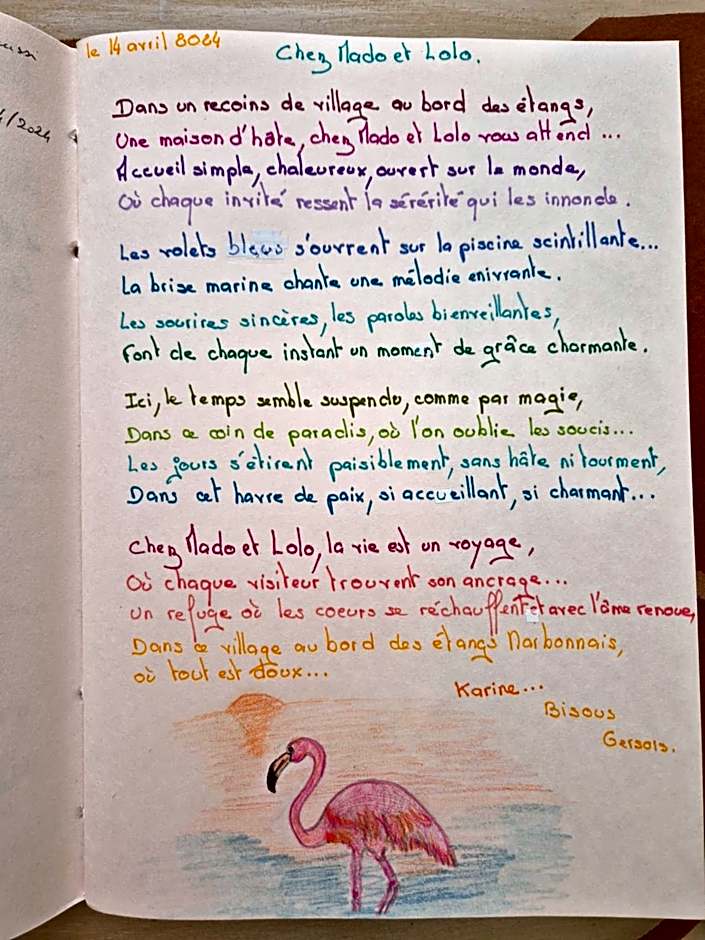 ussi
4/2024
le 14 avril 8084
Chez Mado et Lolo.
Dans un recoins de village au bord des étangs,
Une maison d'hôte, chez Mado et Lolo vous attend...
Accueil simple, chaleureux, ouvert sur le monde,
Où chaque invité ressent la sérérité qui les innonde.
Les volets bleus s'ouvrent sur la piscine scintillante...
La brise marine chante une mélodie enivrante.
Les sourires sincères, les paroles bienveillantes,
Font de chaque instant un moment de grâce charmante.
Ici, le temps semble suspendu, comme par magie,
Dans ce coin de paradis, où l'on oublie les soucis...
Les jours s'étirent paisiblement, sans hâte ni tourment,
Dans cet havre de paix, si accueillant, si charmant...
Chez Mado et Lolo, la vie est un voyage,
Où chaque visiteur trouvent son ancrage...
Un refuge où les coeurs se réchauffent et avec l'âme renoue,
Dans ce village au bord des étangs Narbonnais,
où tout est doux...
Karine...
Bisous
Gersois.